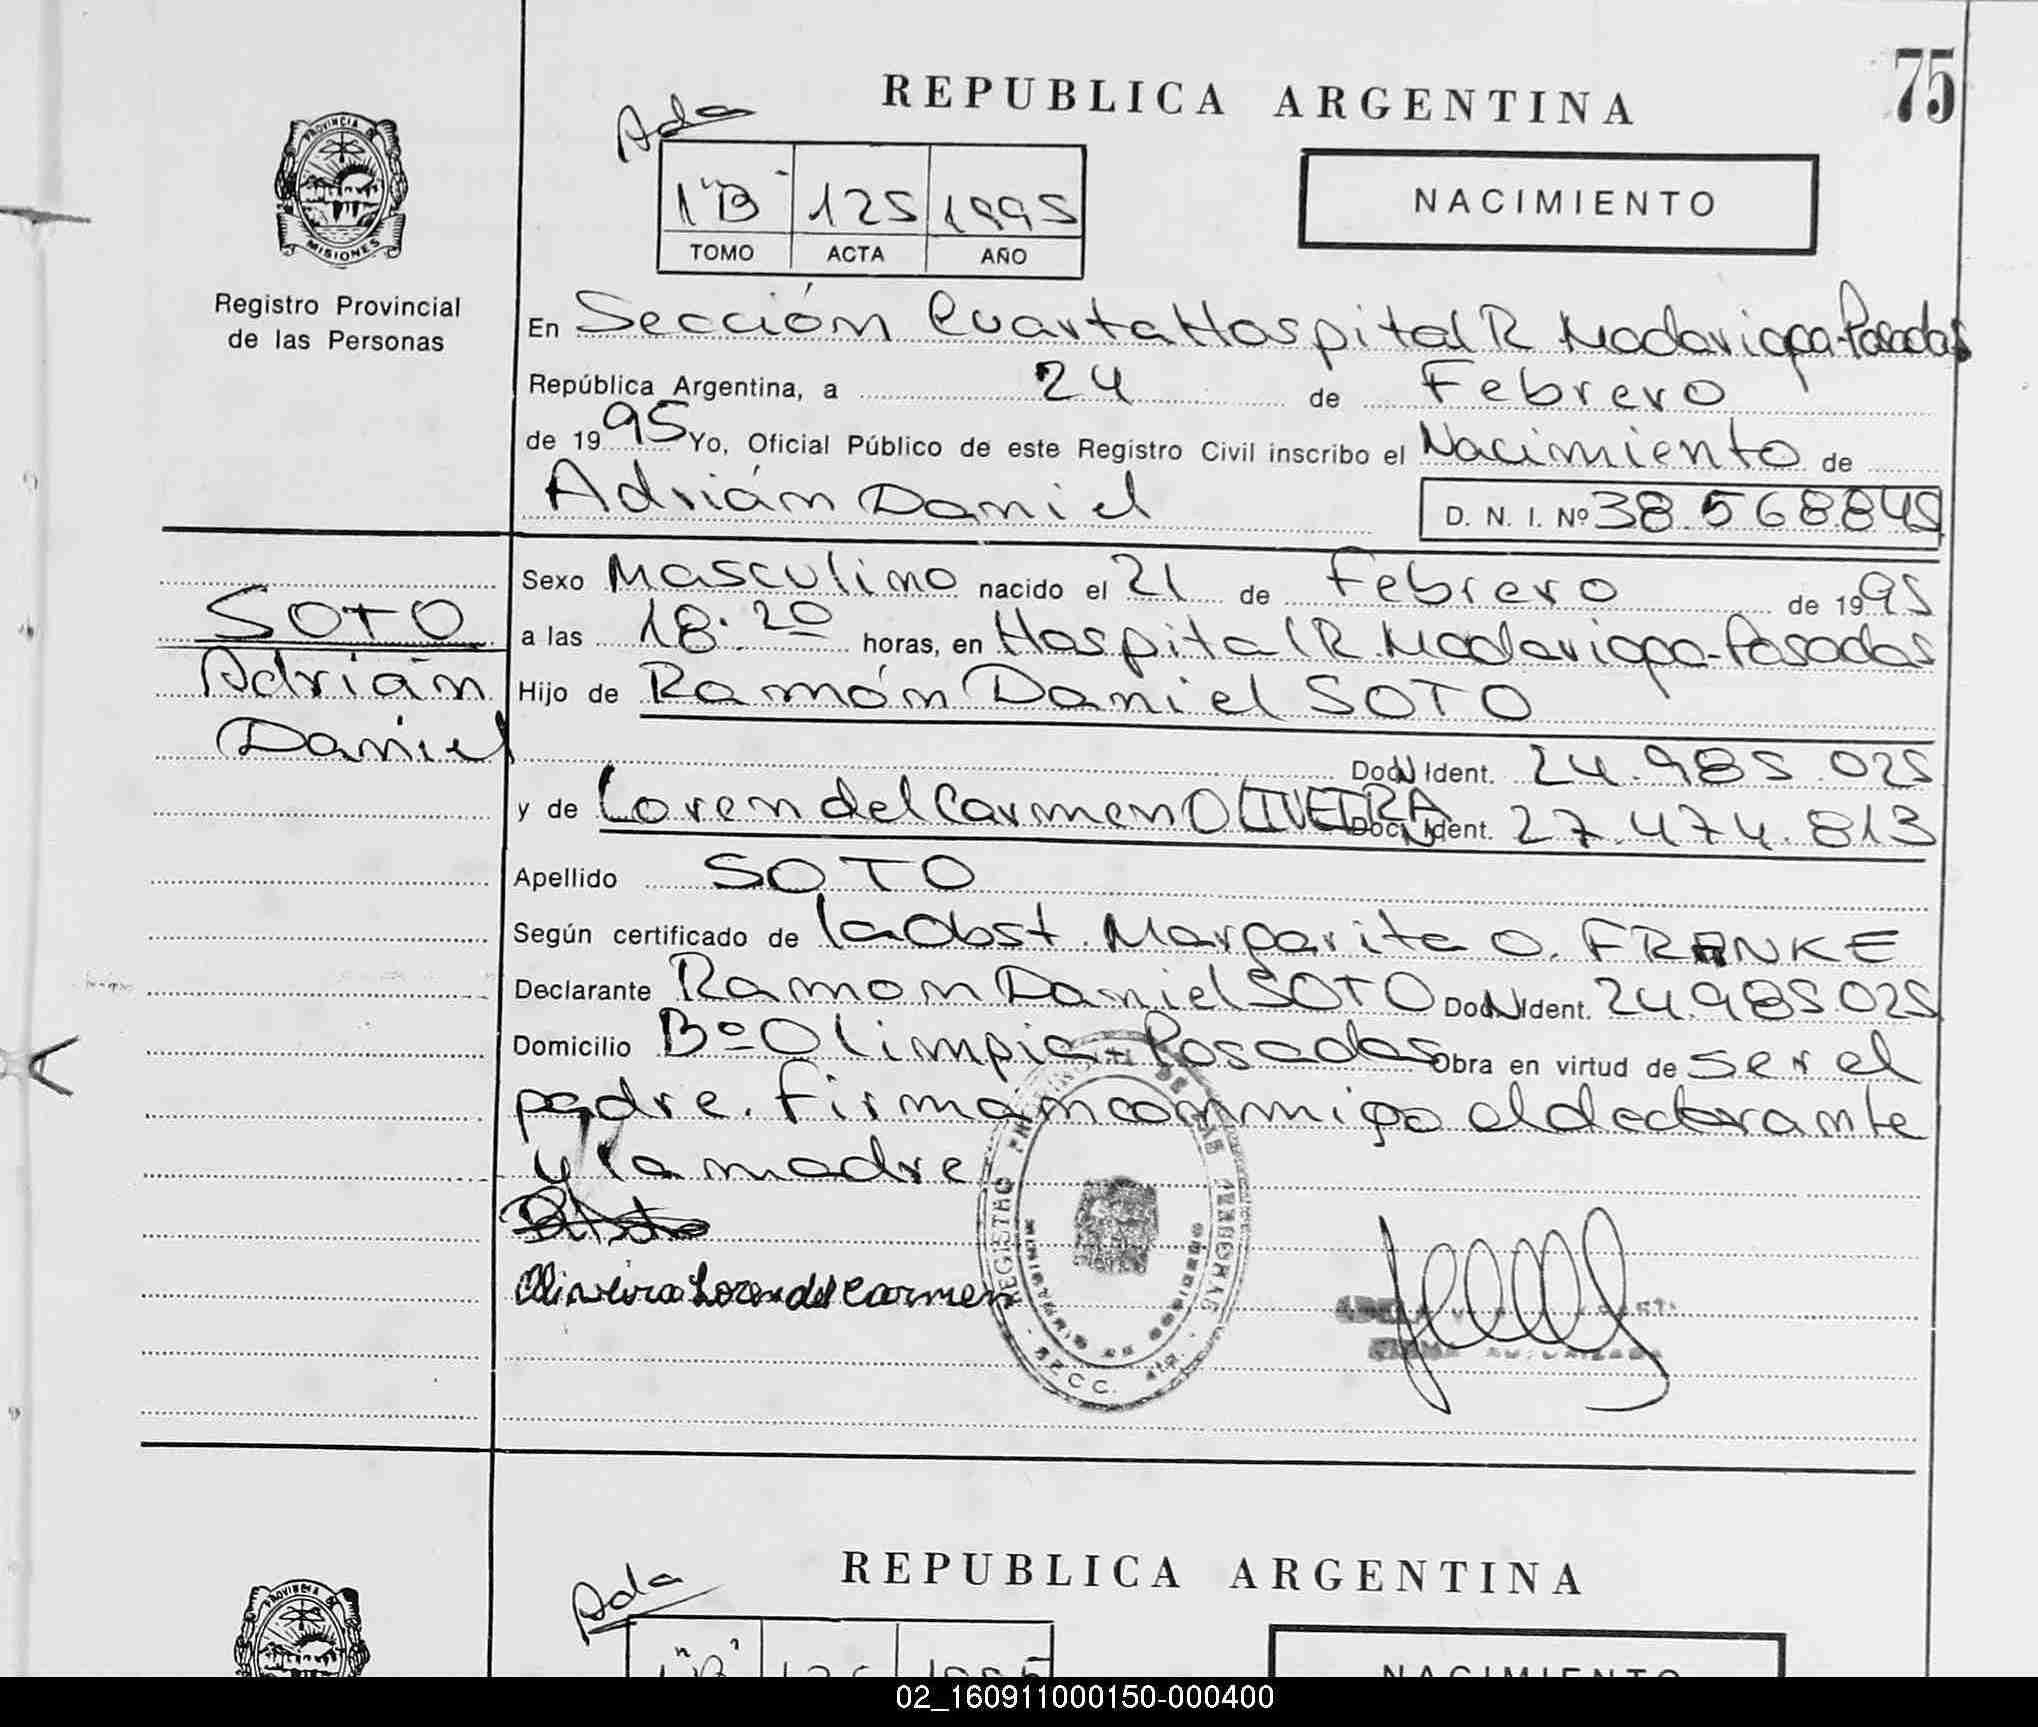 75
REPUBLICA ARGENTINA
Ada
1"B"
125
1995
TOMO
ACTA
AÑO
NACIMIENTO
PROVINCIA DE
MISIONES
Registro Provincial
de las Personas
En Sección Cuarta Hospital R. Madariaga-Posadas
República Argentina, a 24 de Febrero
de 1995 Yo, Oficial Público de este Registro Civil inscribo el Nacimiento de
Adrián Daniel D. N. I. Nº 38.568.845
SOTO
Adrián
Daniel
Sexo Masculino nacido el 21 de Febrero de 1995
a las 18.20 horas, en Hospital R. Madariaga-Posadas
Hijo de Ramón Daniel SOTO
Doc. N Ident. 24.985.025
y de Loren del Carmen OLIVEIRA Doc. N Ident. 27.474.813
Apellido SOTO
Según certificado de la Obst. Margarita O. FRANKE
Declarante Ramon Daniel SOTO Doc. N Ident. 24.985.025
Domicilio Bº Olimpia-Posadas Obra en virtud de ser el
padre. Firman conmigo el declarante
y la madre
Oliveira Loren del Carmen
REGISTRO PROVINCIAL DE LAS PERSONAS
MINISTERIO DE GOBIERNO
SECC. 4ta.
REPUBLICA ARGENTINA
Ada
PROVINCIA
NACIMIENTO
02_160911000150-000400